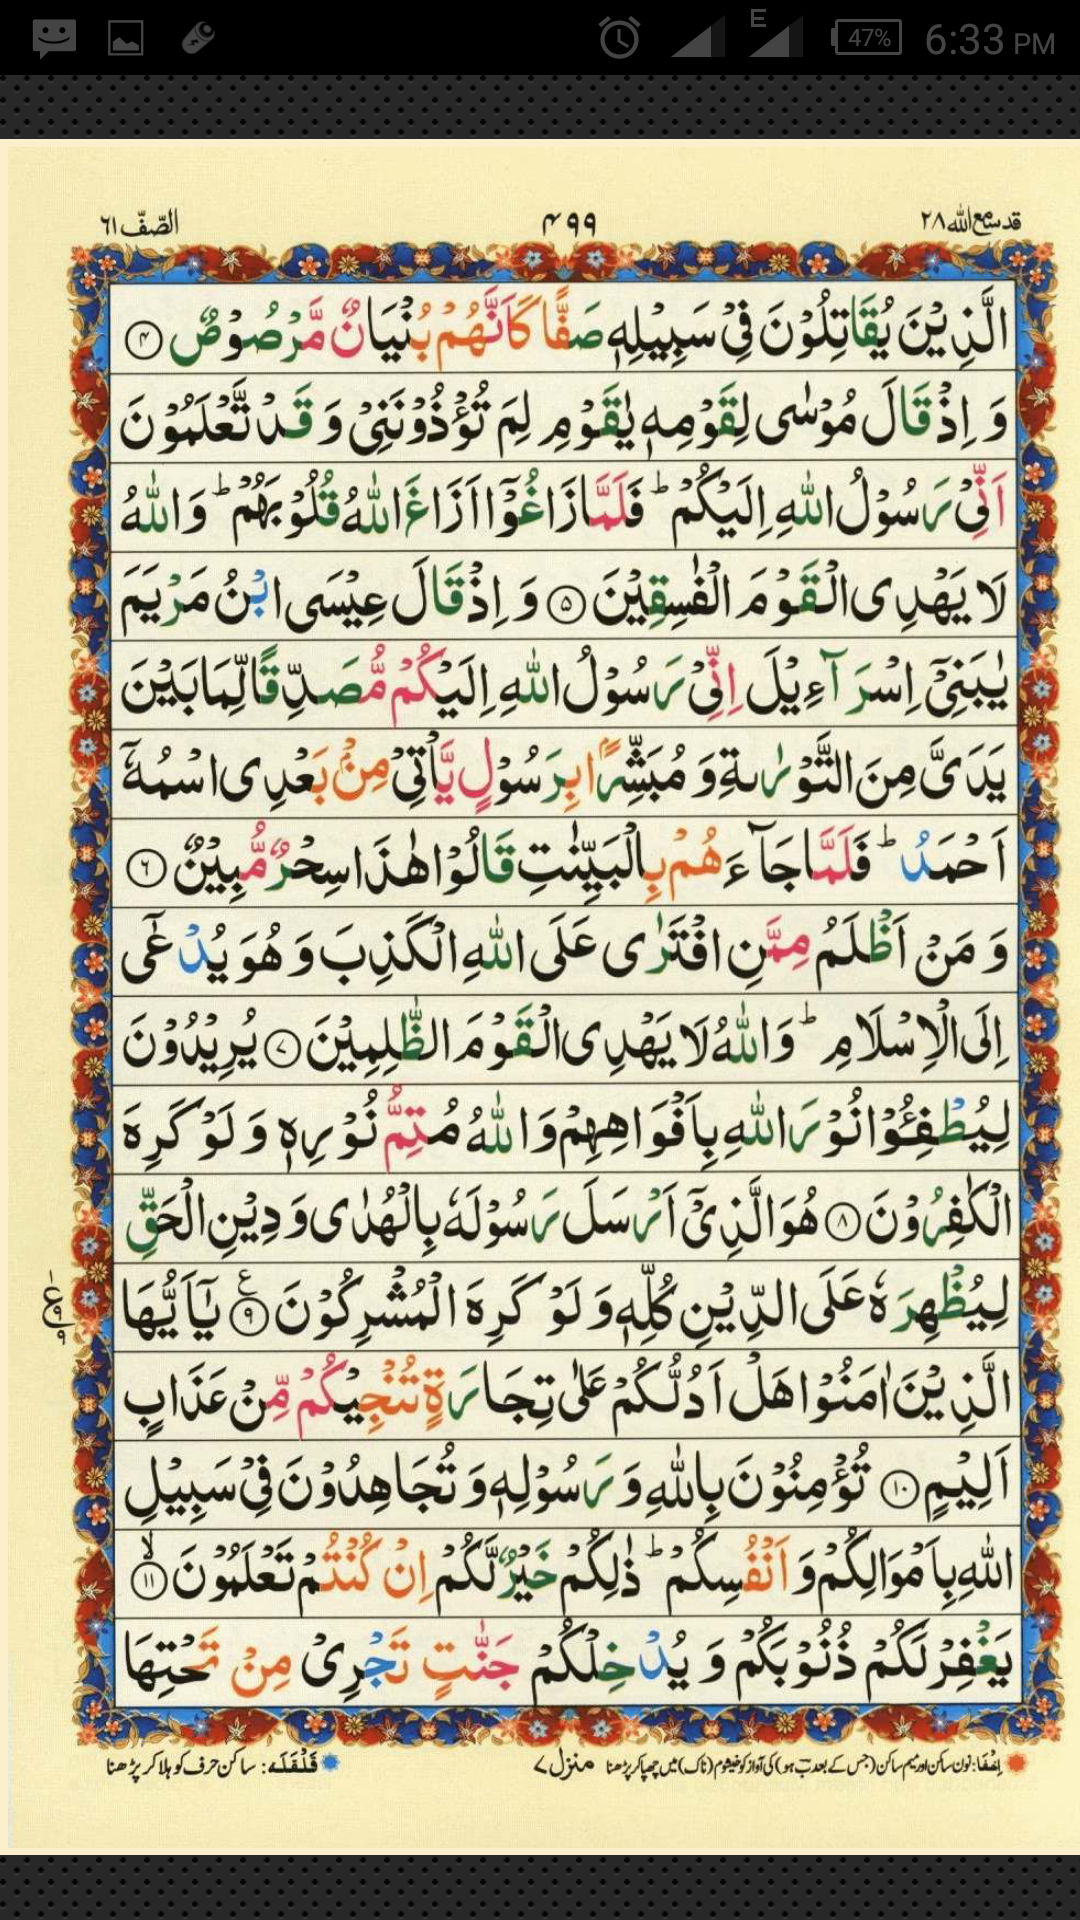 47% 6:33 PM
E
قد سمع الله ٢٨ ۴۹۹ الصّفّ ٦١
الَّذِيْنَ يُقَاتِلُوْنَ فِيْ سَبِيْلِهٖ صَفًّا كَاَنَّهُمْ بُنْيَانٌ مَّرْصُوْصٌ ۴
وَ اِذْ قَالَ مُوْسٰى لِقَوْمِهٖ يٰقَوْمِ لِمَ تُؤْذُوْنَنِيْ وَ قَدْ تَّعْلَمُوْنَ
اَنِّيْ رَسُوْلُ اللّٰهِ اِلَيْكُمْ ؕ فَلَمَّا زَاغُوْۤا اَزَاغَ اللّٰهُ قُلُوْبَهُمْ ؕ وَ اللّٰهُ
لَا يَهْدِى الْقَوْمَ الْفٰسِقِيْنَ ۵ وَ اِذْ قَالَ عِيْسَى ابْنُ مَرْيَمَ
يٰبَنِيْۤ اِسْرَآءِيْلَ اِنِّيْ رَسُوْلُ اللّٰهِ اِلَيْكُمْ مُّصَدِّقًا لِّمَا بَيْنَ
يَدَيَّ مِنَ التَّوْرٰىةِ وَ مُبَشِّرًۢا بِرَسُوْلٍ يَّاْتِيْ مِنْۢ بَعْدِى اسْمُهٗۤ
اَحْمَدُ ؕ فَلَمَّا جَآءَهُمْ بِالْبَيِّنٰتِ قَالُوْا هٰذَا سِحْرٌ مُّبِيْنٌ ۶
وَ مَنْ اَظْلَمُ مِمَّنِ افْتَرٰى عَلَى اللّٰهِ الْكَذِبَ وَ هُوَ يُدْعٰۤى
اِلَى الْاِسْلَامِ ؕ وَ اللّٰهُ لَا يَهْدِى الْقَوْمَ الظّٰلِمِيْنَ ۷ يُرِيْدُوْنَ
لِيُطْفِـُٔوْا نُوْرَ اللّٰهِ بِاَفْوَاهِهِمْ وَ اللّٰهُ مُتِمُّ نُوْرِهٖ وَ لَوْ كَرِهَ
الْكٰفِرُوْنَ ۸ هُوَ الَّذِيْۤ اَرْسَلَ رَسُوْلَهٗ بِالْهُدٰى وَ دِيْنِ الْحَقِّ
لِيُظْهِرَهٗ عَلَى الدِّيْنِ كُلِّهٖ وَ لَوْ كَرِهَ الْمُشْرِكُوْنَ ۹ ع يٰۤاَيُّهَا
الَّذِيْنَ اٰمَنُوْا هَلْ اَدُلُّكُمْ عَلٰى تِجَارَةٍ تُنْجِيْكُمْ مِّنْ عَذَابٍ
اَلِيْمٍ ۱۰ تُؤْمِنُوْنَ بِاللّٰهِ وَ رَسُوْلِهٖ وَ تُجَاهِدُوْنَ فِيْ سَبِيْلِ
اللّٰهِ بِاَمْوَالِكُمْ وَ اَنْفُسِكُمْ ؕ ذٰلِكُمْ خَيْرٌ لَّكُمْ اِنْ كُنْتُمْ تَعْلَمُوْنَ ۙ ۱۱
يَغْفِرْ لَكُمْ ذُنُوْبَكُمْ وَ يُدْخِلْكُمْ جَنّٰتٍ تَجْرِيْ مِنْ تَحْتِهَا
اِخفَا: نون ساکن اور میم ساکن (جس کے بعد ب ہو) کی آواز کو خیشوم (ناک) میں چھپا کر پڑھنا منزل ۷ قَلْقَلَه: ساکن حرف کو ہلا کر پڑھنا